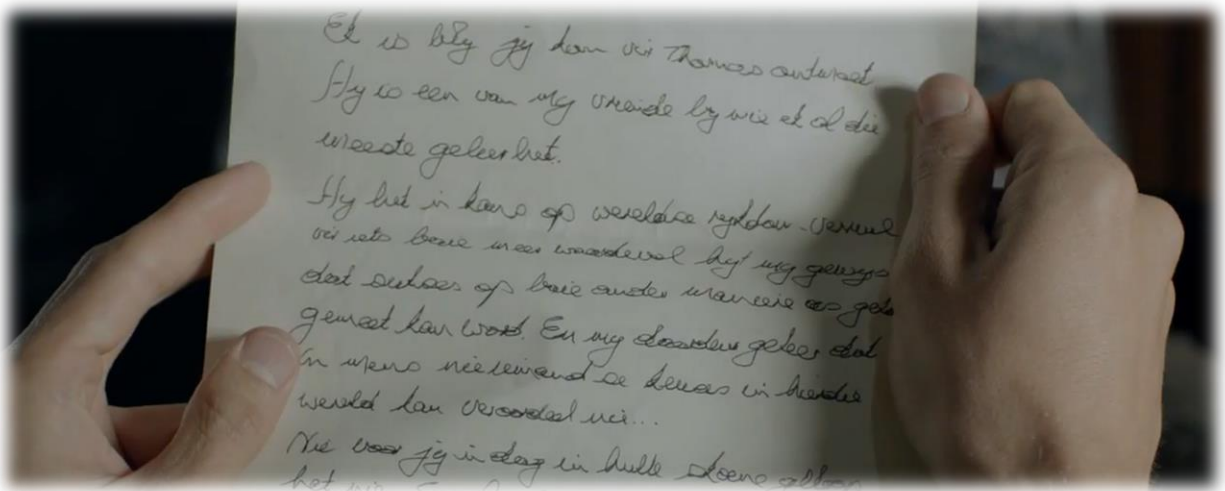 Ek is bly jy kon vir Thomas ontmoet
Hy is een van my vriende by wie ek al die
meeste geleer het.
Hy het 'n kans op wêreldse rykdom verruil
vir iets baie meer waardevol hy't my gewys
dat sukses op baie ander maniere as geld
gemeet kan word. En my daardeur geleer dat
'n mens niemand se keuses in hierdie
wereld kan veroordeel nie...
Nie voor jy 'n dag in hulle skoene geloop
het nie.